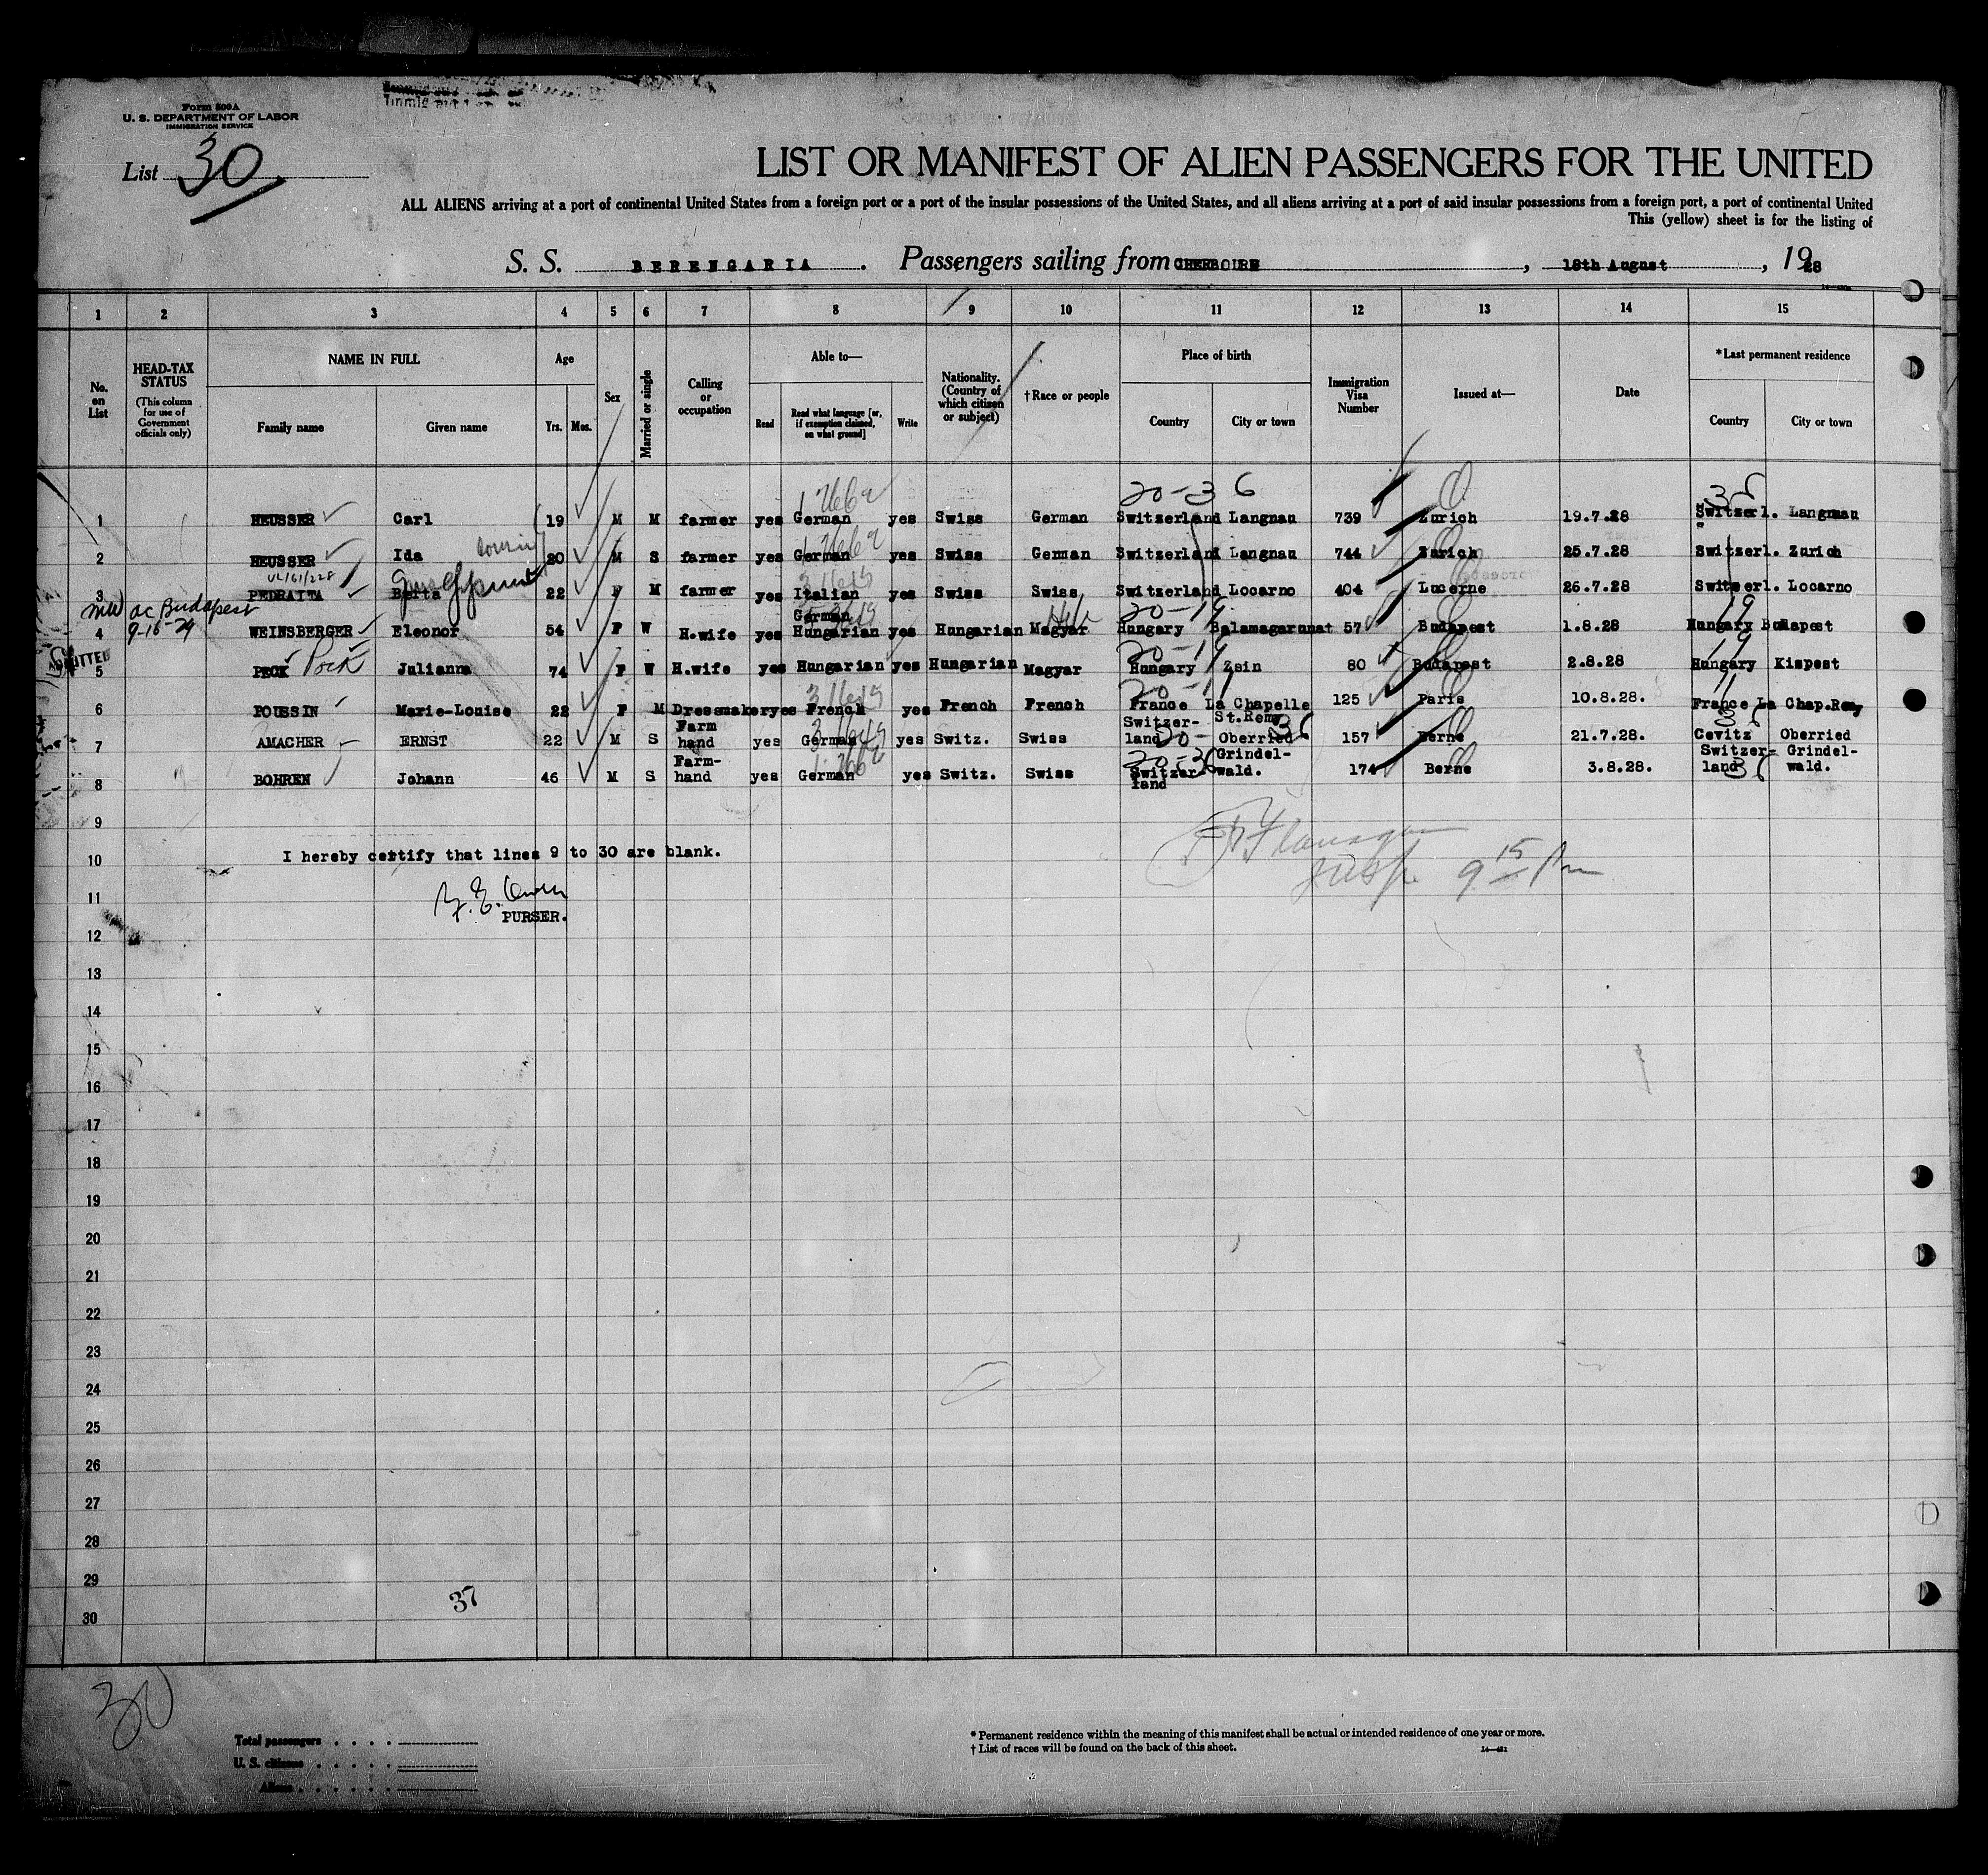 Form 500A
U. S. DEPARTMENT OF LABOR
IMMIGRATION SERVICE
List 30
LIST OR MANIFEST OF ALIEN PASSENGERS FOR THE UNITED
ALL ALIENS arriving at a port of continental United States from a foreign port or a port of the insular possessions of the United States, and all aliens arriving at a port of said insular possessions from a foreign port, a port of continental United
This (yellow) sheet is for the listing of
S. S. BERENGARIA. Passengers sailing from CHERBOURG, 18th August, 1928
1 2 3 4 5 6 7 8 9 10 11 12 13 14 15
No. on List
HEAD-TAX STATUS (This column for use of Government officials only)
NAME IN FULL
Family name Given name
Age
Yrs. Mos.
Sex
Married or single
Calling or occupation
Able to—
Read
Read what language [or, if exemption claimed, on what ground]
Write
Nationality. (Country of which citizen or subject)
†Race or people
Place of birth
Country City or town
Immigration Visa Number
Issued at—
Date
*Last permanent residence
Country City or town
20-36 36
1 HEUSSER Carl 19 M M farmer yes German yes Swiss German Switzerland Langnau 739 Zurich 19.7.28 Switzerl. Langnau
cousin
2 HEUSSER Ida 20 M S farmer yes German yes Swiss German Switzerland Langnau 744 Zurich 25.7.28 Switzerl. Zurich
3 PEDRAITA Berta 22 F M farmer yes Italian yes Swiss Swiss Switzerland Locarno 404 Lucerne 26.7.28 Switzerl. Locarno
ac Budapest
9-16-29
20-19 19
4 WEINSBERGER Eleonor 54 F W H.wife yes German Hungarian yes Hungarian Magyar Hungary Balamagarunat 57 Budapest 1.8.28 Hungary Budapest
ADMITTED
20-19 19
5 PECK Pock Julianna 74 F W H.wife yes Hungarian yes Hungarian Magyar Hungary Zsin 80 Budapest 2.8.28 Hungary Kispest
20-11 11
6 POUSSIN Marie-Louise 22 F M Dressmaker yes French yes French French France La Chapelle St.Remy 125 Paris 10.8.28. France La Chap.Remy
7 AMACHER ERNST 22 M S Farm hand yes German yes Switz. Swiss Switzer-land 20-36 Oberried 157 Berne 21.7.28. Cevitz Oberried
8 BOHREN Johann 46 M S Farm-hand yes German yes Switz. Swiss 20-36 Switzer-land Grindel-wald. 174 Berne 3.8.28. Switzer-land 36 Grindel-wald.
9
10 I hereby certify that lines 9 to 30 are blank.
9 15 Pm
11
PURSER.
12
13
14
15
16
17
18
19
20
21
22
23
24
25
26
27
28
29
37
30
30
Total passengers
U. S. citizens
Aliens
* Permanent residence within the meaning of this manifest shall be actual or intended residence of one year or more.
† List of races will be found on the back of this sheet.